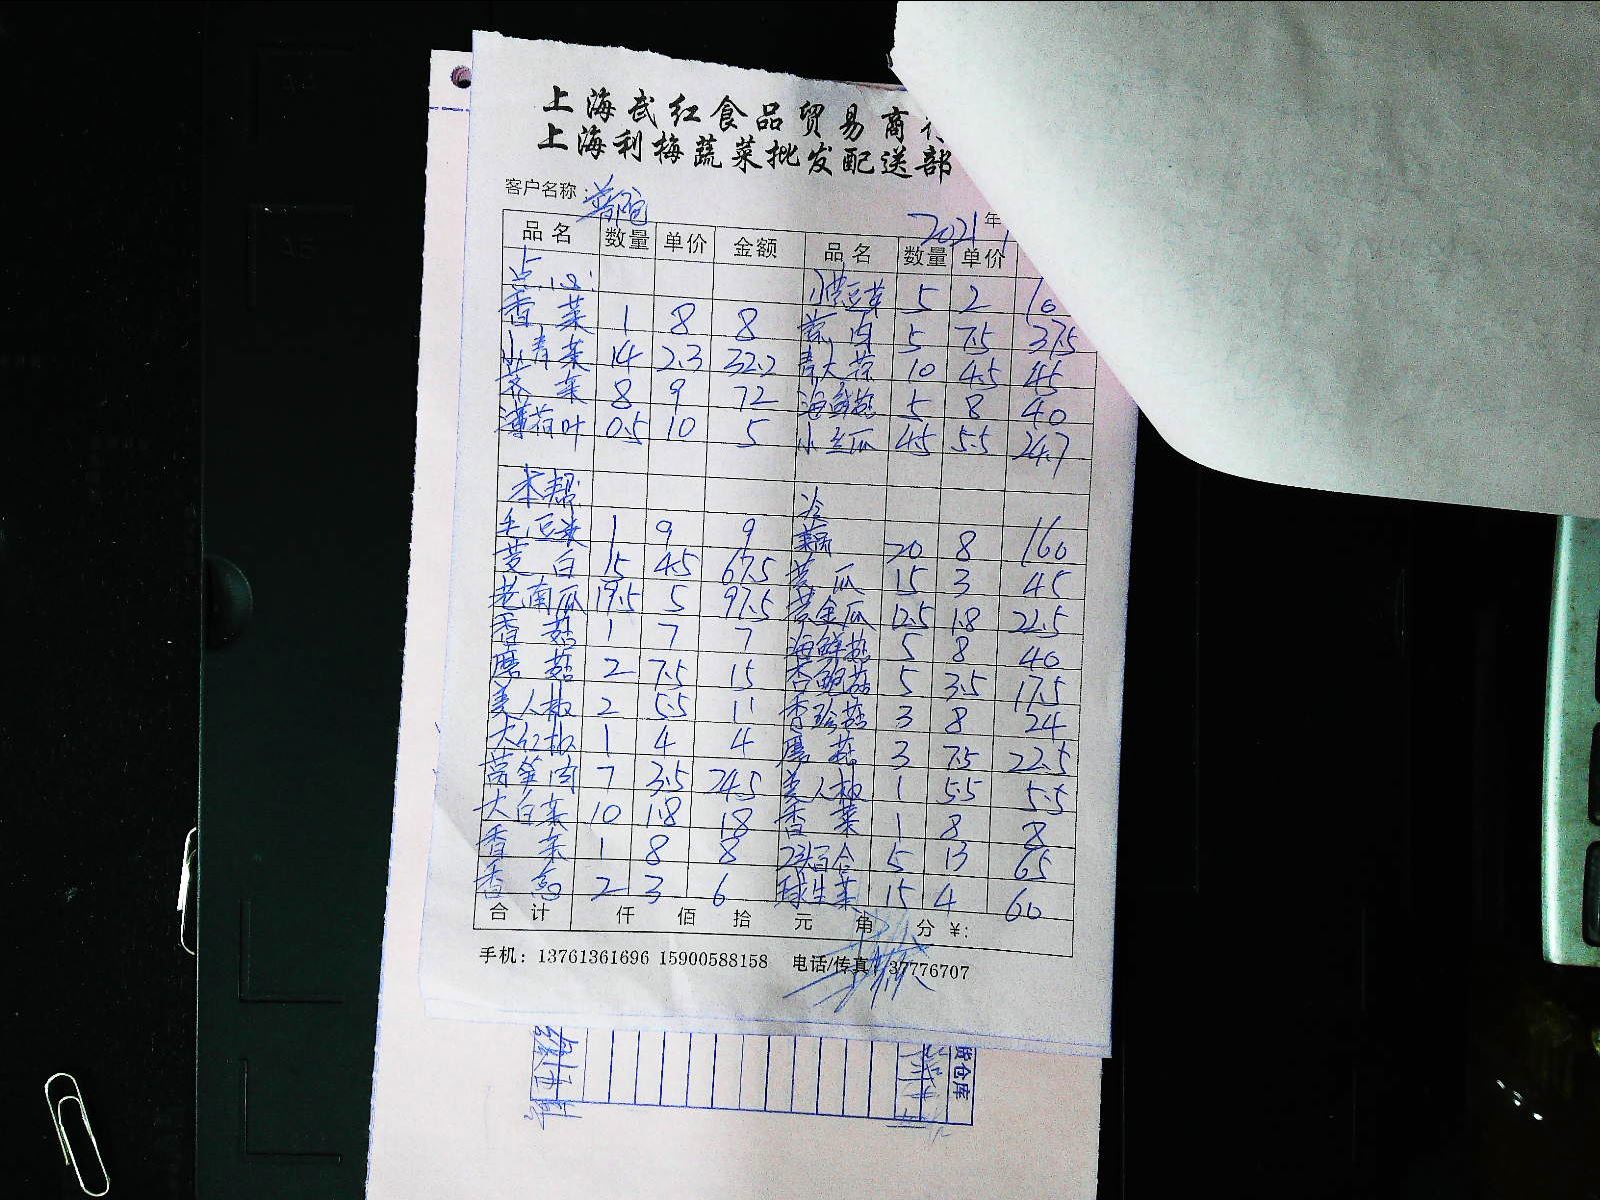 上海武红食品贸易商
上海利梅蔬菜批发配送部
客户名称：
2021年
品名 数量 单价 金额 品名 数量 单价
点心: 5 2 10
香菜 1 8 8 5 7.5 37.5
小青菜 14 2.3 32.2 青大蒜 10 4.5 45
荠菜 8 9 72 海鲜菇 5 8 40
薄荷叶 0.5 10 5 小丝瓜 4.5 5.5 24.7
本帮 冷
毛豆米 1 9 9 藕 20 8 160
茭白 15 4.5 67.5 黄瓜 15 3 45
老南瓜 19.5 5 97.5 黄金瓜 12.5 1.8 22.5
香菇 1 7 7 海鲜菇 5 8 40
蘑菇 2 7.5 15 杏鲍菇 5 3.5 17.5
美人椒 2 5.5 11 秀珍菇 3 8 24
大红椒 1 4 4 蘑菇 3 7.5 22.5
莴笋肉 7 3.5 24.5 美人椒 1 5.5 5.5
大白菜 10 1.8 18 香菜 1 8 8
香菜 1 8 8 百合 5 13 65
香葱 2 3 6 球生菜 15 4 60
合计 仟 佰 拾 元 角 分 ¥:
手机: 13761361696 15900588158 电话/传真: 37776707
货仓库